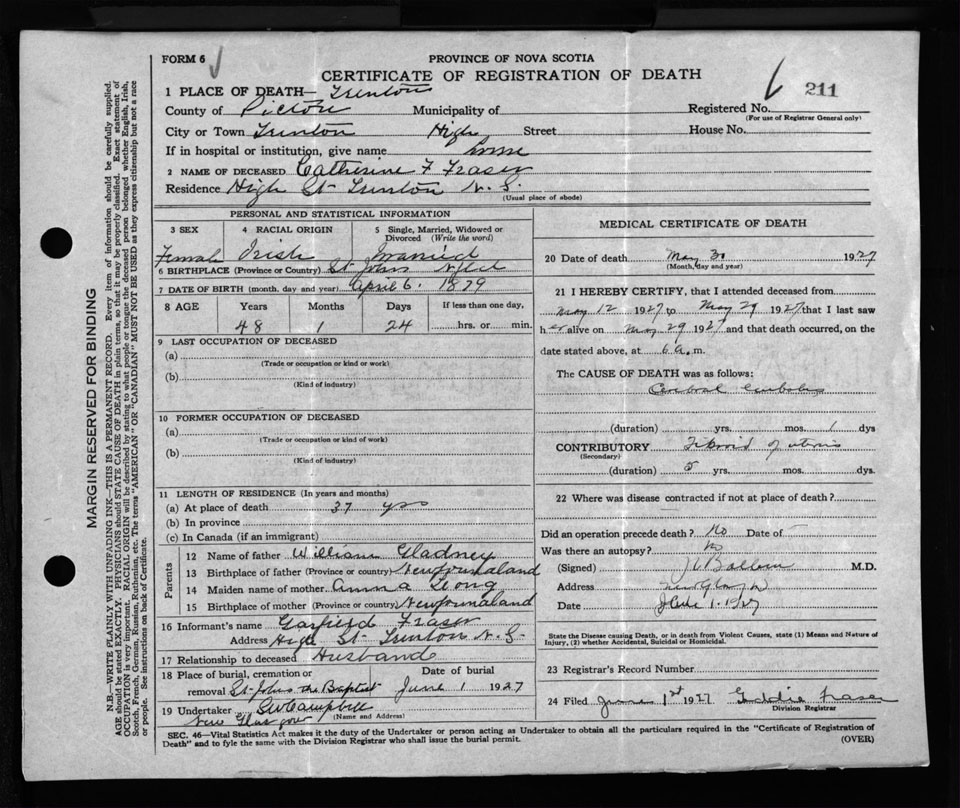 FORM 6
PROVINCE OF NOVA SCOTIA
CERTIFICATE OF REGISTRATION OF DEATH
211
1 PLACE OF DEATH— Trenton
County of Pictou Municipality of Registered No.
(For use of Registrar General only)
City or Town Trenton High Street House No.
If in hospital or institution, give name home
2 NAME OF DECEASED Catherine F Fraser
Residence High St Trenton N.S.
(Usual place of abode)
PERSONAL AND STATISTICAL INFORMATION
3 SEX 4 RACIAL ORIGIN 5 Single, Married, Widowed or Divorced (Write the word)
Female Irish Married
6 BIRTHPLACE (Province or Country) St Johns Nfld
7 DATE OF BIRTH (month, day and year) April 6. 1879
8 AGE Years Months Days If less than one day,
48 1 24 hrs. or min.
9 LAST OCCUPATION OF DECEASED
(a)
(Trade or occupation or kind of work)
(b)
(Kind of industry)
10 FORMER OCCUPATION OF DECEASED
(a)
(Trade or occupation or kind of work)
(b)
(Kind of industry)
11 LENGTH OF RESIDENCE (In years and months)
(a) At place of death 37 yrs
(b) In province
(c) In Canada (if an immigrant)
Parents
12 Name of father William Gladney
13 Birthplace of father (Province or country) Newfoundland
14 Maiden name of mother Anna Long
15 Birthplace of mother (Province or country) Newfoundland
16 Informant's name Garfield Fraser
Address High St Trenton N.S.
17 Relationship to deceased Husband
18 Place of burial, cremation or Date of burial
removal St Johns the Baptist June 1 1927
19 Undertaker Campbell
New Glasgow (Name and Address)
MEDICAL CERTIFICATE OF DEATH
20 Date of death May 30 1927
(Month, day and year)
21 I HEREBY CERTIFY, that I attended deceased from
May 12 1927 to May 29 1927 that I last saw
her alive on May 29 1927 and that death occurred, on the
date stated above, at 6 a.m.
The CAUSE OF DEATH was as follows:
Cerebral Embolus
(duration) yrs. mos. 1 dys
CONTRIBUTORY Fibroid of uterus
(Secondary)
(duration) 5 yrs. mos. dys.
22 Where was disease contracted if not at place of death?
Did an operation precede death? No Date of
Was there an autopsy? No
(Signed) M.D.
Address New Glasgow
Date June 1. 1927
State the Disease causing Death, or in death from Violent Causes, state (1) Means and Nature of
Injury, (2) whether Accidental, Suicidal or Homicidal.
23 Registrar's Record Number
24 Filed June 1st 1927 Eddie Fraser
Division Registrar
SEC. 46—Vital Statistics Act makes it the duty of the Undertaker or person acting as Undertaker to obtain all the particulars required in the "Certificate of Registration of
Death" and to fyle the same with the Division Registrar who shall issue the burial permit.
(OVER)
MARGIN RESERVED FOR BINDING
N.B.—WRITE PLAINLY WITH UNFADING INK—THIS IS A PERMANENT RECORD. Every item of information should be carefully supplied.
AGE should be stated EXACTLY. PHYSICIANS should STATE CAUSE OF DEATH in plain terms, so that it may be properly classified. Exact statement of
OCCUPATION is very important. RACIAL ORIGIN will be described by stating to what people or tongue the deceased person belonged whether English, Irish,
Scotch, French, German, Russian, Ruthenian, etc. The terms "AMERICAN" OR "CANADIAN" MUST NOT BE USED as they express citizenship but not a race
or people. See instructions on back of Certificate.